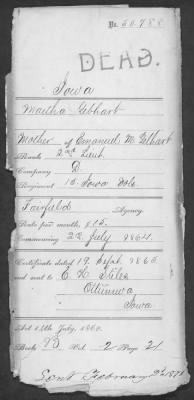 No. 50.788
DEAD.
Iowa
Martha Gebhart
Mother of Emanuel M. Gebhart
Rank 2nd Lieut.
Company D
Regiment 15. Iowa Vols
Fairfield Agency
Rate per month, $15.
Commencing 22. July 1864.
Certificate dated 19. Sept. 1865
and sent to E. L. Stiles
Ottumwa
Iowa
Act 14th July, 1862.
Book 93 Vol. 2 Page 21